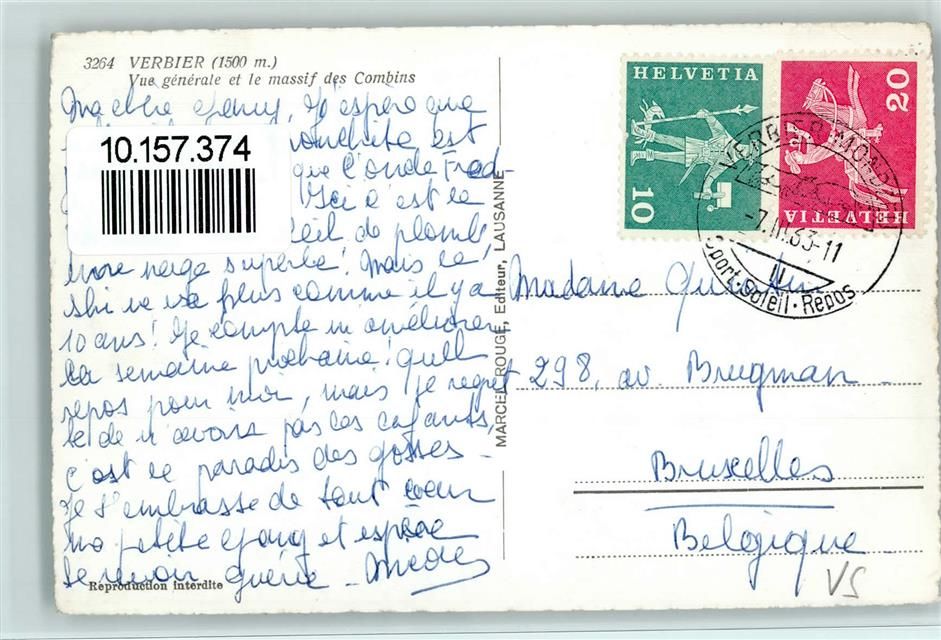 3264 VERBIER (1500 m.)
Vue générale et le massif des Combins
Ma chère Jenny, J'espère que
est
10.157.374
que l'oncle Fred-
Ici c'est le
soleil de plomb,
une neige superbe! Mais le
ski ne va plus comme il y a
10 ans! Je compte m'améliorer
la semaine prochaine! quel
repos pour moi, mais je regret
te de n'avoir pas les enfants,
c'est le paradis des gosses -
Je t'embrasse de tout coeur
ma petite Jenny et espère
te revoir guérie -
Reproduction interdite
MARCEL ROUGE, Editeur, LAUSANNE
HELVETIA
10
20
HELVETIA
VERBIER-MONDZEU
-7.III.63-11
Sport·Soleil·Repos
Madame
298, av. Brugman -
Bruxelles
Belgique
VS